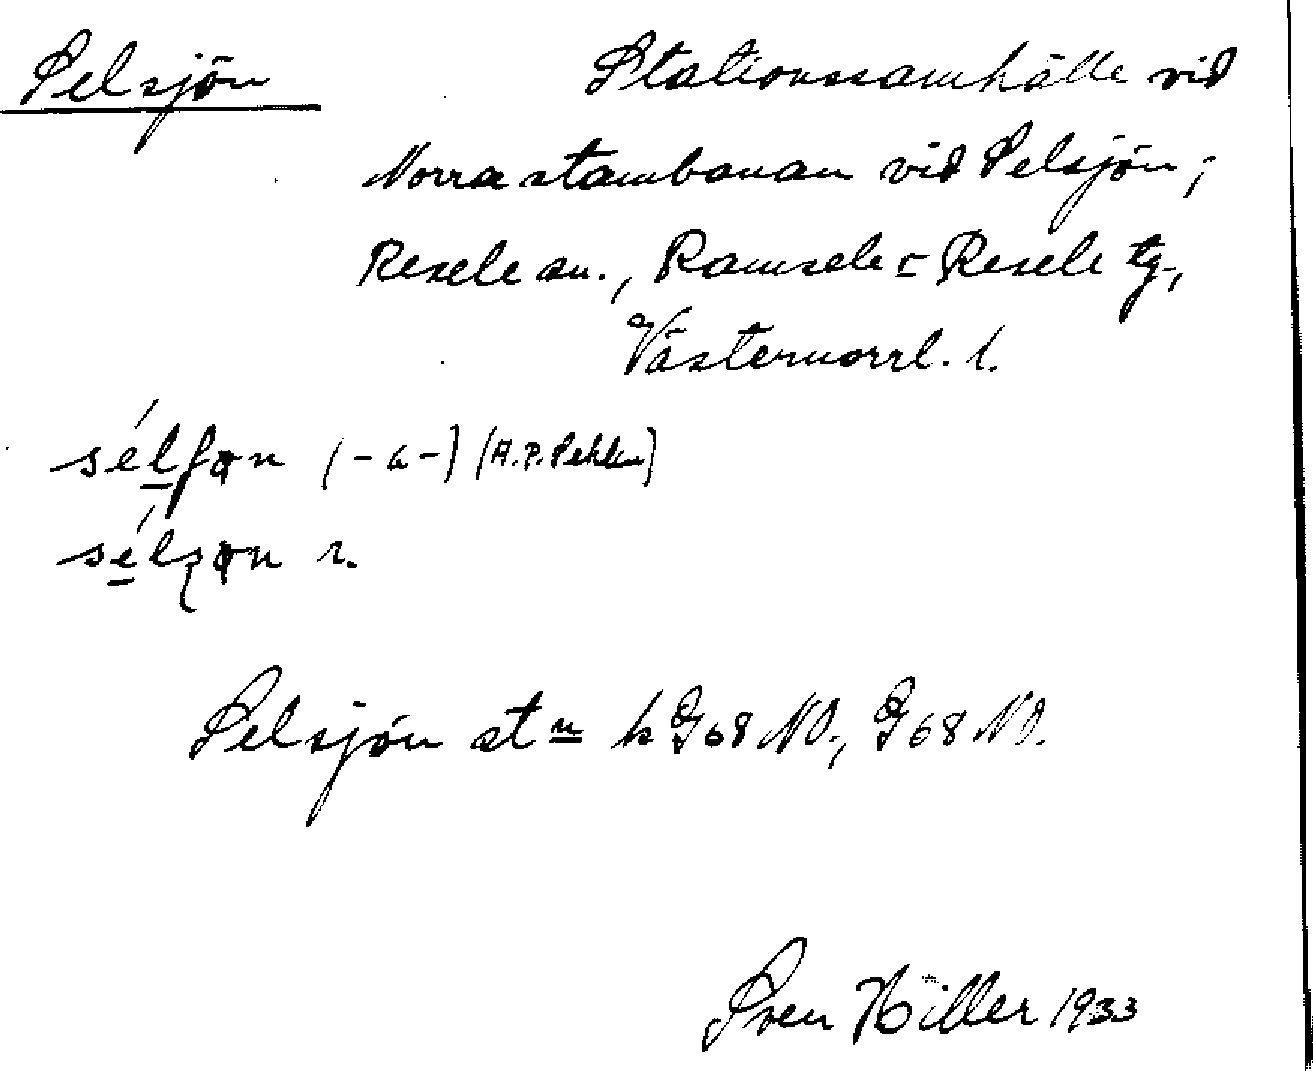 Selsjön Stationssamhälle vid
Norra stambanan vid Selsjön;
Resele sn., Ramsele o Resele tg.,
Västernorrl. l.
(-a-) (A.P.
r.
Selsjön stn k G68 NO., G68 NO.
Sven Höller 1933